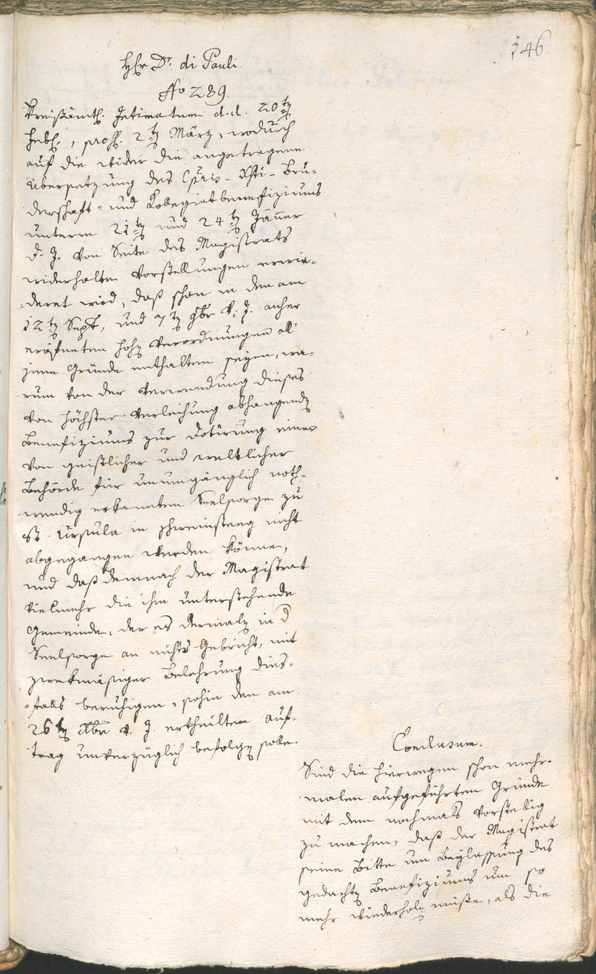 346
Hr. Dr. di Pauli.
No 289.
Kreisämtl. Intimatum d.d. 20ten
Feb., praes. 2ten März, wodurch
auf die wider die angetragene
Übersetzung des Corp. Xsti-Bru-
derschaft- und Kolegiatbenefiziums
unterm 21ten und 24ten Jäner
d. J. von Seite des Magistrats
widerholten Vorstellungen erwie-
dert wird, daß schon in den am
12ten Sept. und 7ten 9ber v. J. anher
eröfneten hohen Verordnungen al
jene Gründe enthalten seyen, wa-
rum von der Verwendung dieses
von höchster Verleihung abhangenden
Benefiziums zur Dotirung einer
von geistlicher und weltlicher
Behörde für unumgänglich noth-
wendig erkannten Seelsorge zu
St. Ursula in nicht
abgegangen werden könne,
und daß demnach der Magistrat
vielmehr die ihm unterstehende
Gemeinde, der es dermalen in der
Seelsorge an nichts gebricht, mit
zwekmäsiger Belehrung dies-
falls beruhigen, sohin den am
26ten v. J. ertheilten Auf-
trag unverzüglich befolgen solle.
Conclusum.
Sind die hierwegen schon mehr-
malen aufgeführten Gründe
mit dem nochmals vorstellig
zu machen, daß der Magistrat
seine Bitte um Beylassung des
gedachten Benefiziums um so
mehr wiederholen müße, als die